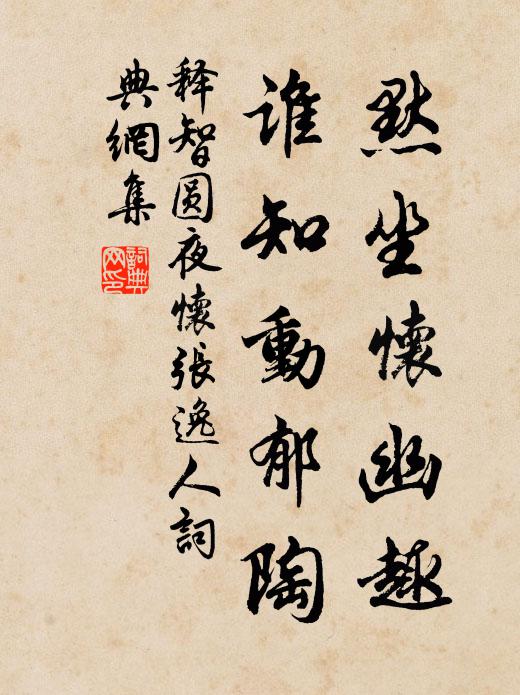 默坐懷幽趣
誰知動郁陶
釋智圓夜懷張逸人詞
典網集
詞典
网印